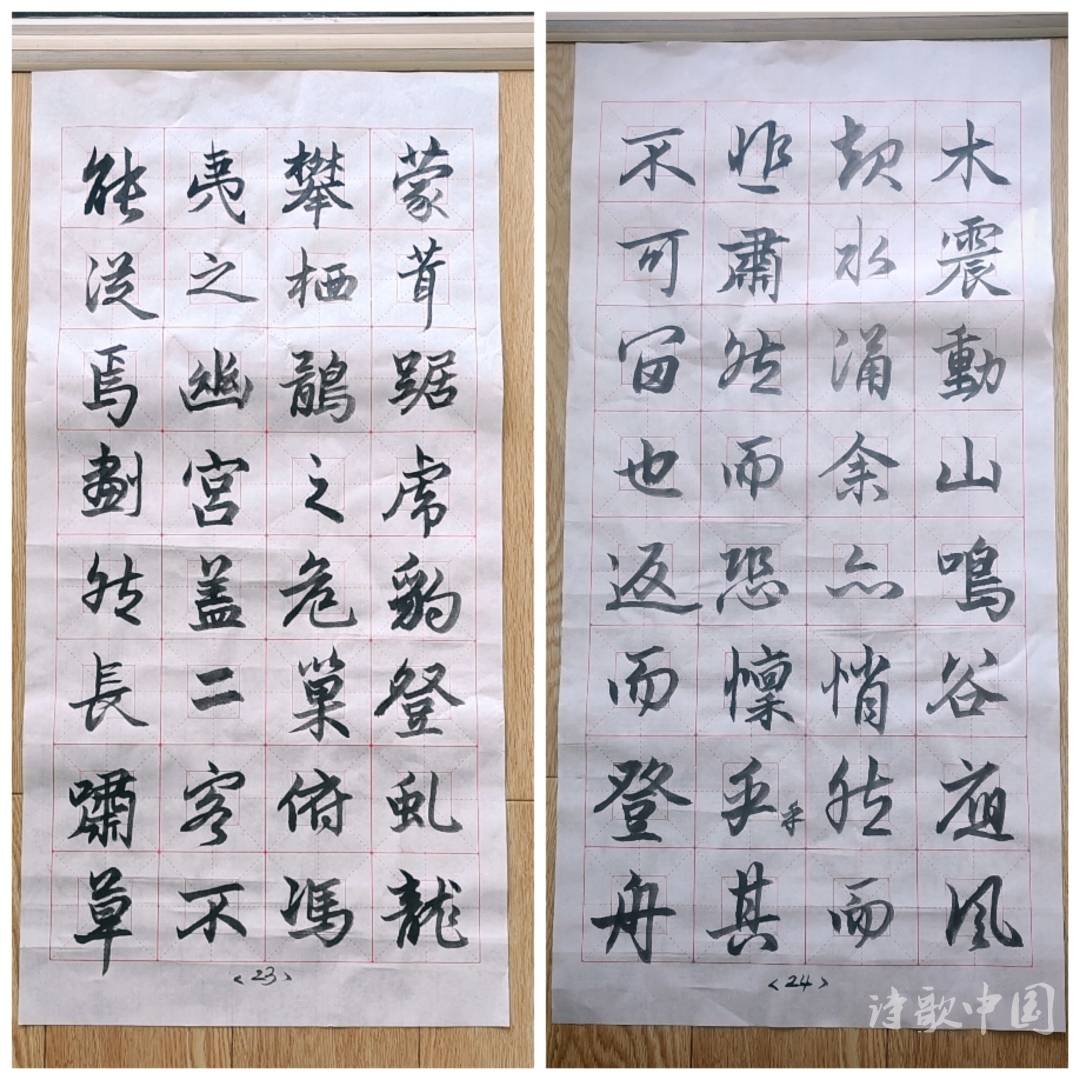 蒙茸踞虎豹登虬龍
攀栖鶻之危巢俯馮
夷之幽宮盖二客不
能從焉劃然長嘯草
<23>
木震動山鳴谷應風
起水涌余亦悄然而
悲肅然而恐懍乎其
乎
不可留也返而登舟
<24>
诗歌中国